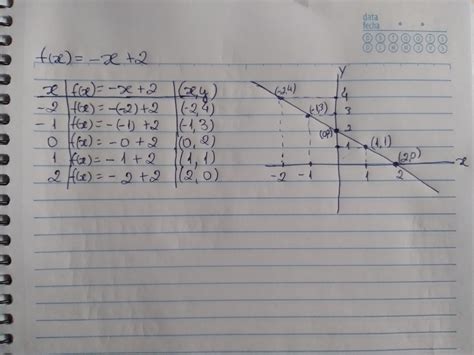 data
fecha
f(x) = -x + 2
x | f(x) = -x + 2 | (x, y)
-2 | f(x) = -(-2) + 2 | (-2, 4)
-1 | f(x) = -(-1) + 2 | (-1, 3)
0 | f(x) = -0 + 2 | (0, 2)
1 | f(x) = -1 + 2 | (1, 1)
2 | f(x) = -2 + 2 | (2, 0)
y
(-2,4) 4
(-1,3) 3
2
1 (1,1)
(2,0) x
-2 -1 1 2